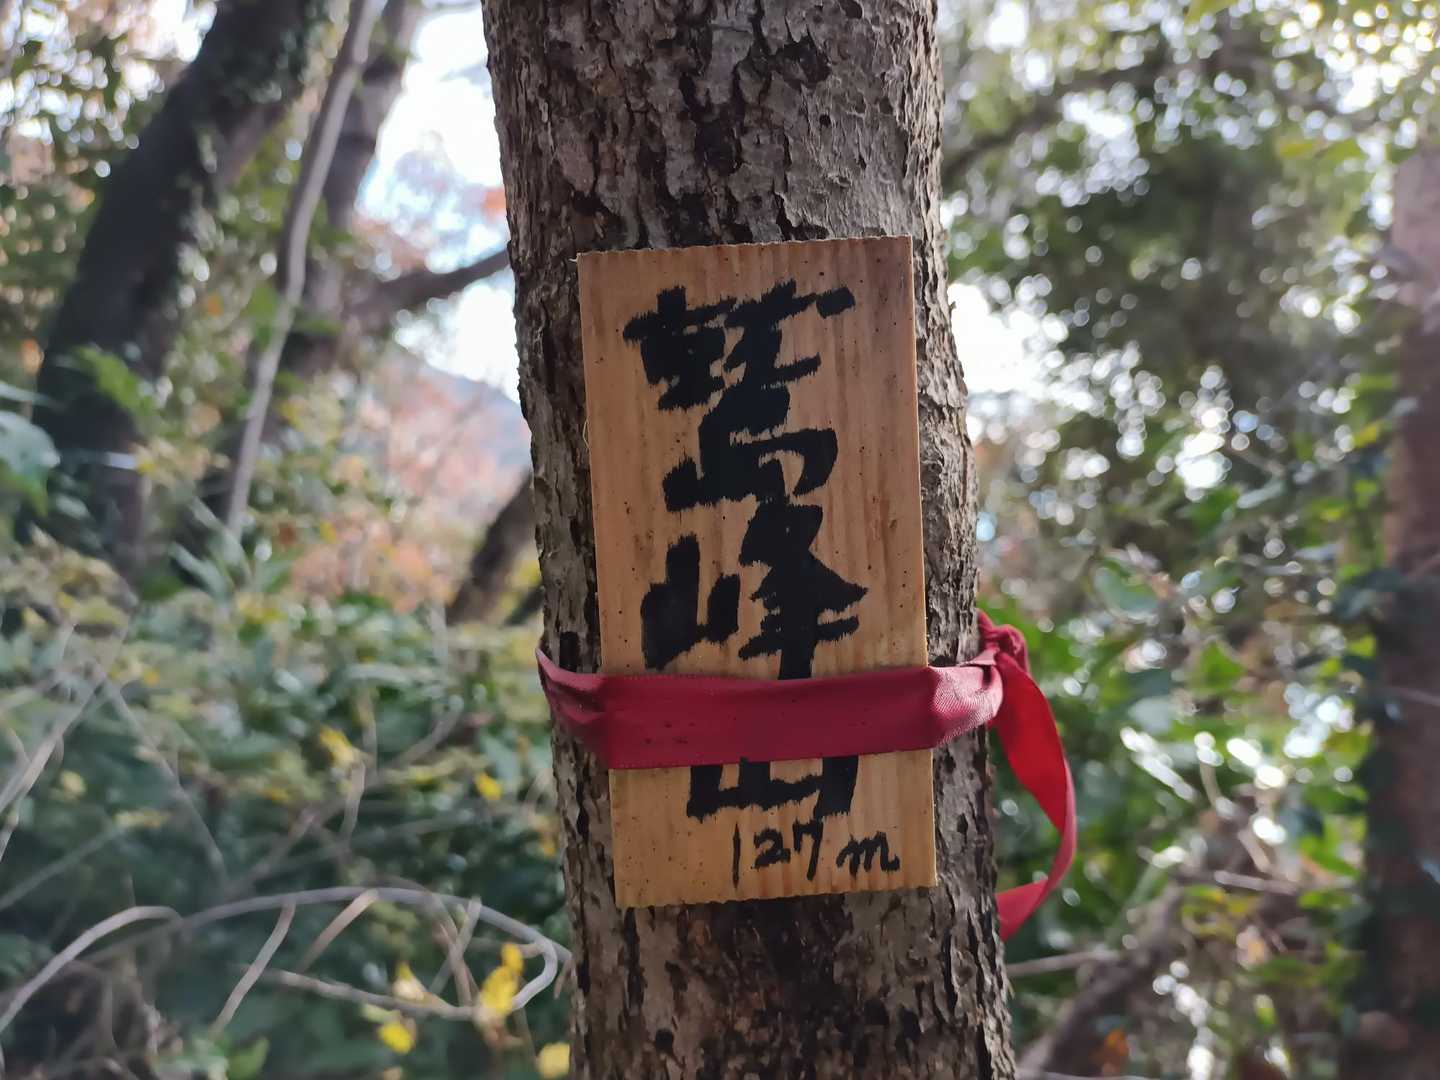 鷲峰山
127m